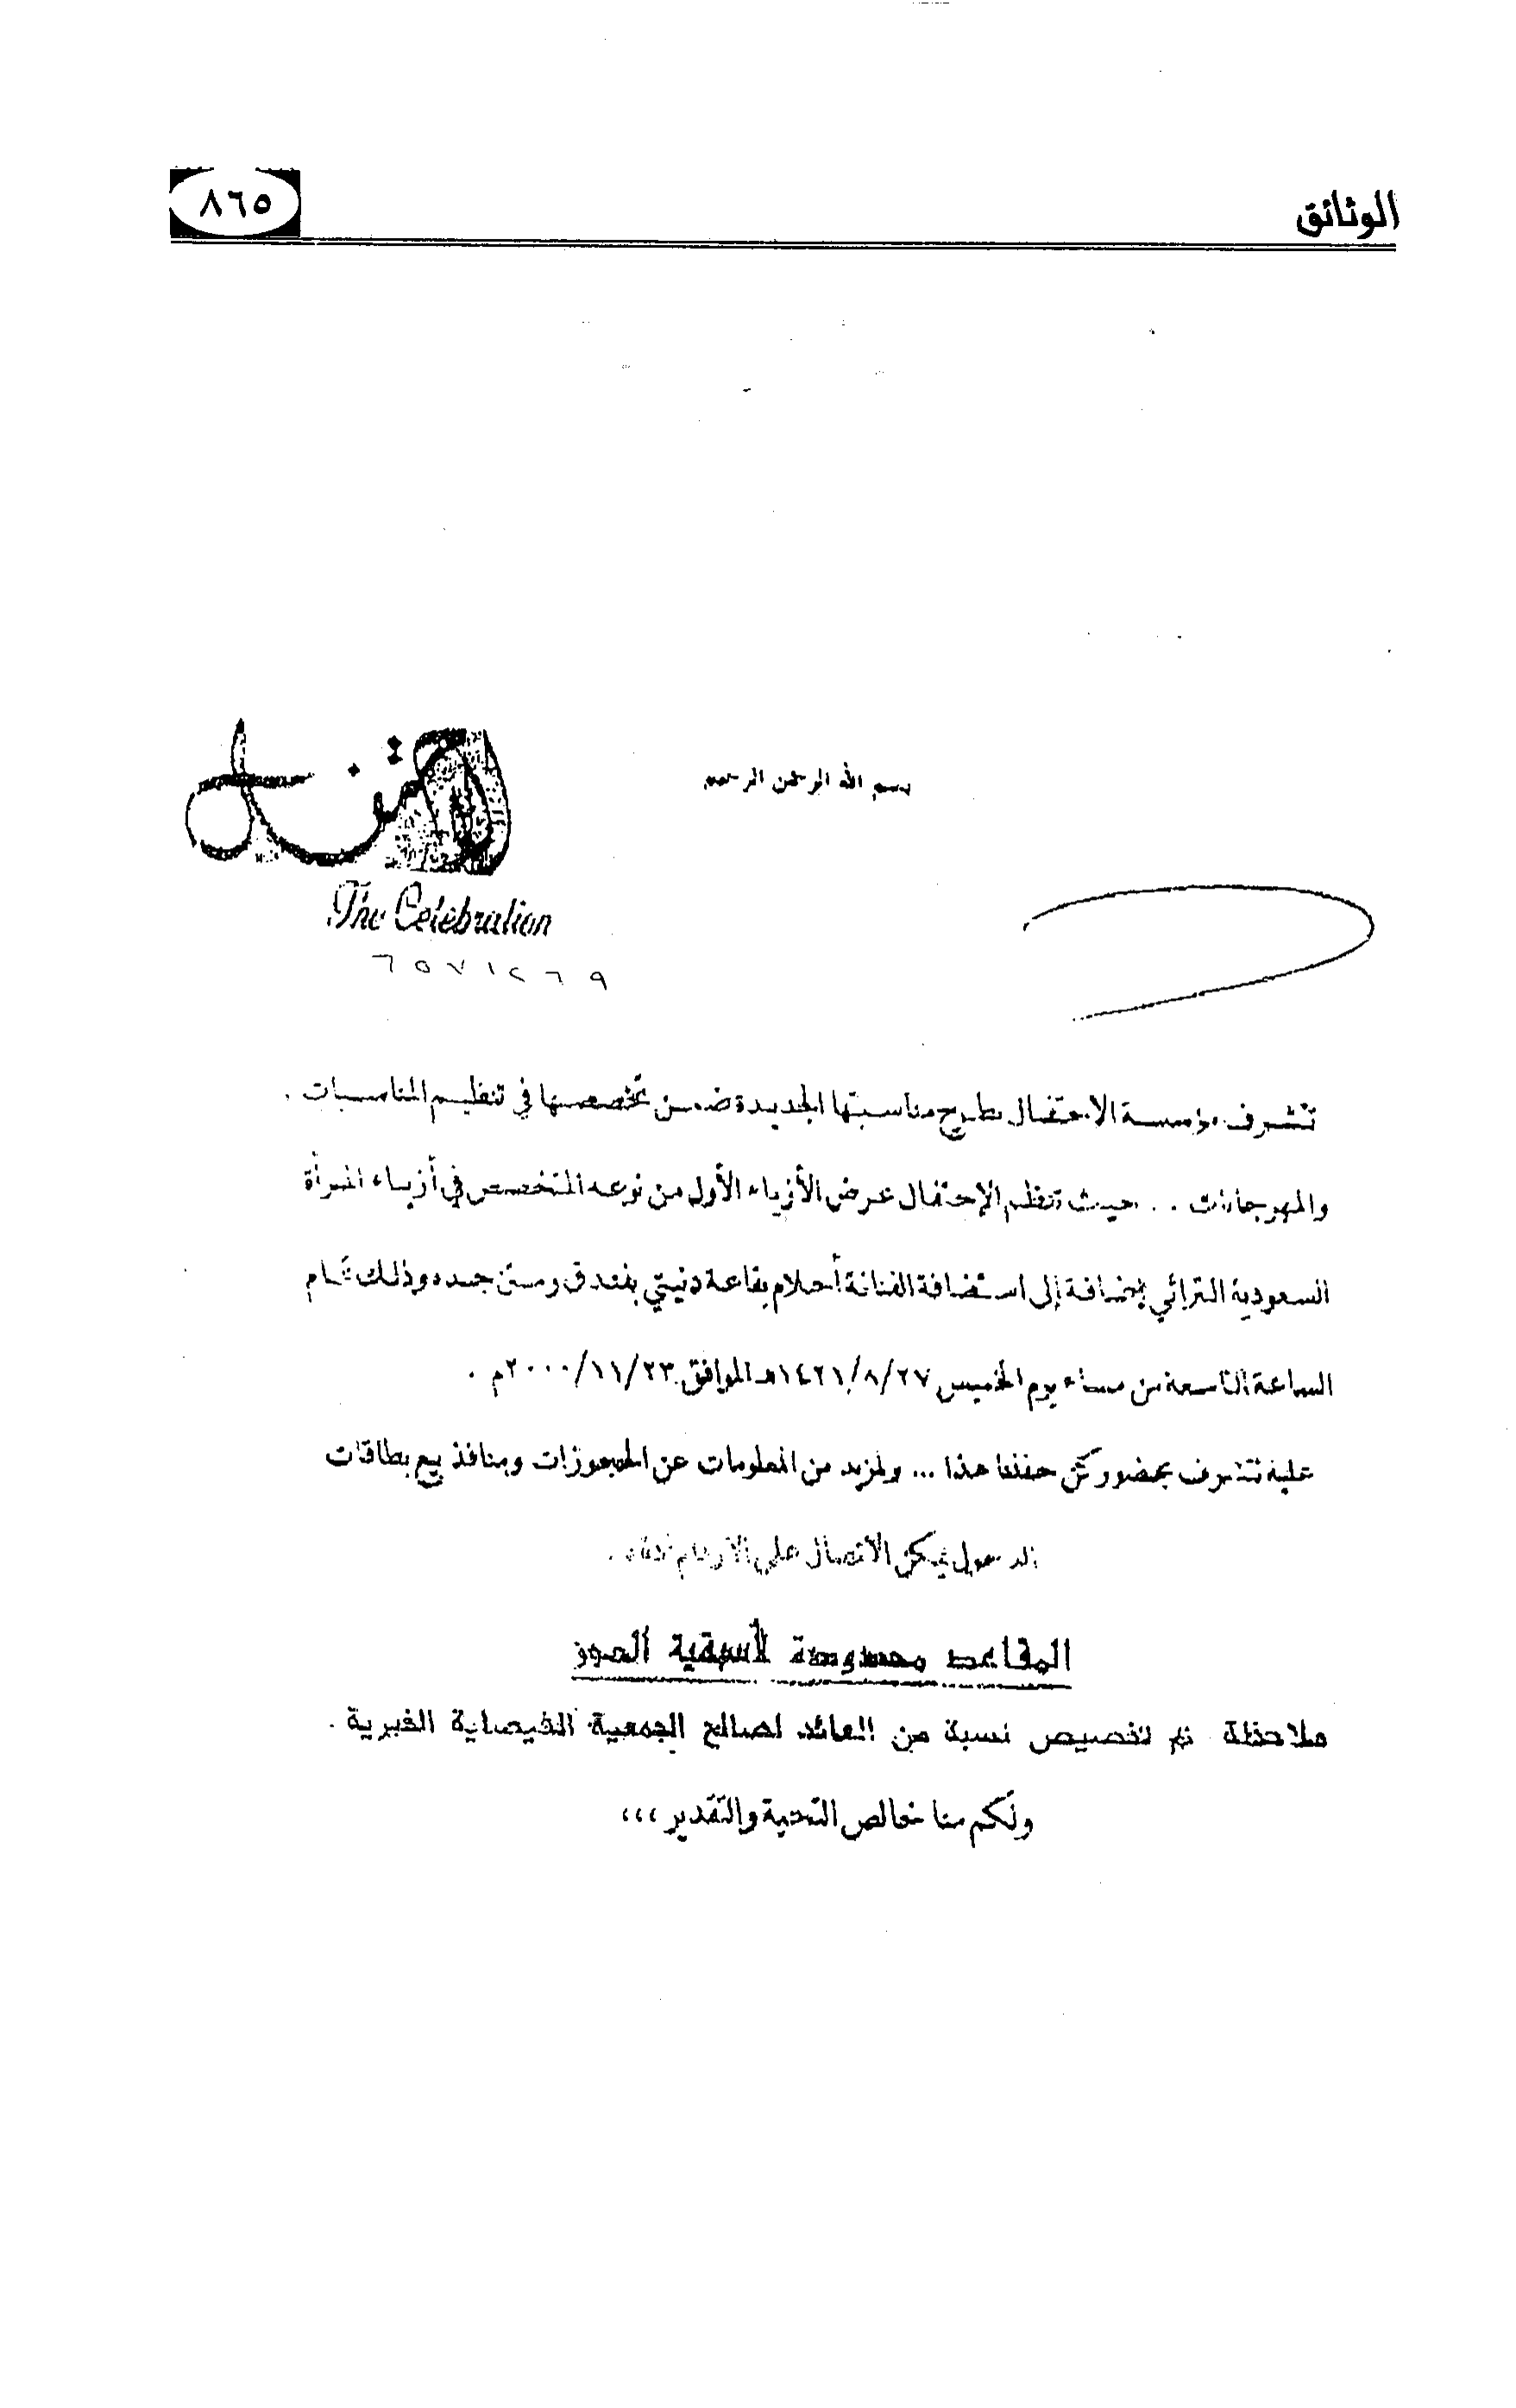 الوثائق
٨٦٥
بسم الله الرحمن الرحيم
الاحتفال
The Celebration
٦٥٧١٢٦٩
تتشرف مؤسسة الاحتفال بطرح مناسبتها الجديدة ضمن تخصصها في تنظيم المناسبات .
والمهرجانات .. حيث تنظم الإحتفال عرض الأزياء الأول من نوعه المتخصص في أزياء المرأة
السعودية التراثي إضافة إلى استضافة الفنانة أحلام بقاعة دنيتي بفندق وستن جده وذلك تمام
الساعة التاسعة من مساء يوم الخميس ١٤٢١/٨/٢٧هـ الموافق ٢٠٠٠/١١/٢٣م .
عليه نتشرف بحضوركن حفلنا هذا ... ولمزيد من المعلومات عن الحجوزات ومنافذ بيع بطاقات
الدخول يمكن الأتصال على الأرقام
المقاعد محدودة لأسبقية الحجز
ملاحظة تم تخصيص نسبة من العائد لصالح الجمعية الفيصلية الخيرية .
ولكم منا خالص التحية والتقدير ،،،